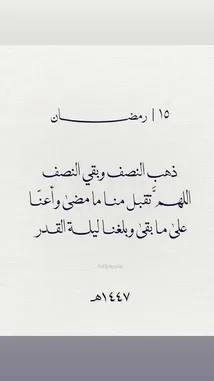 ١٥ | رمضــــــان
ذهب النصف وبقي النصف
اللهمَّ تقبل منا ما مضىٰ وأعنّا
علىٰ ما بقىٰ وبلغنا ليلة القدر
١٤٤٧هـ